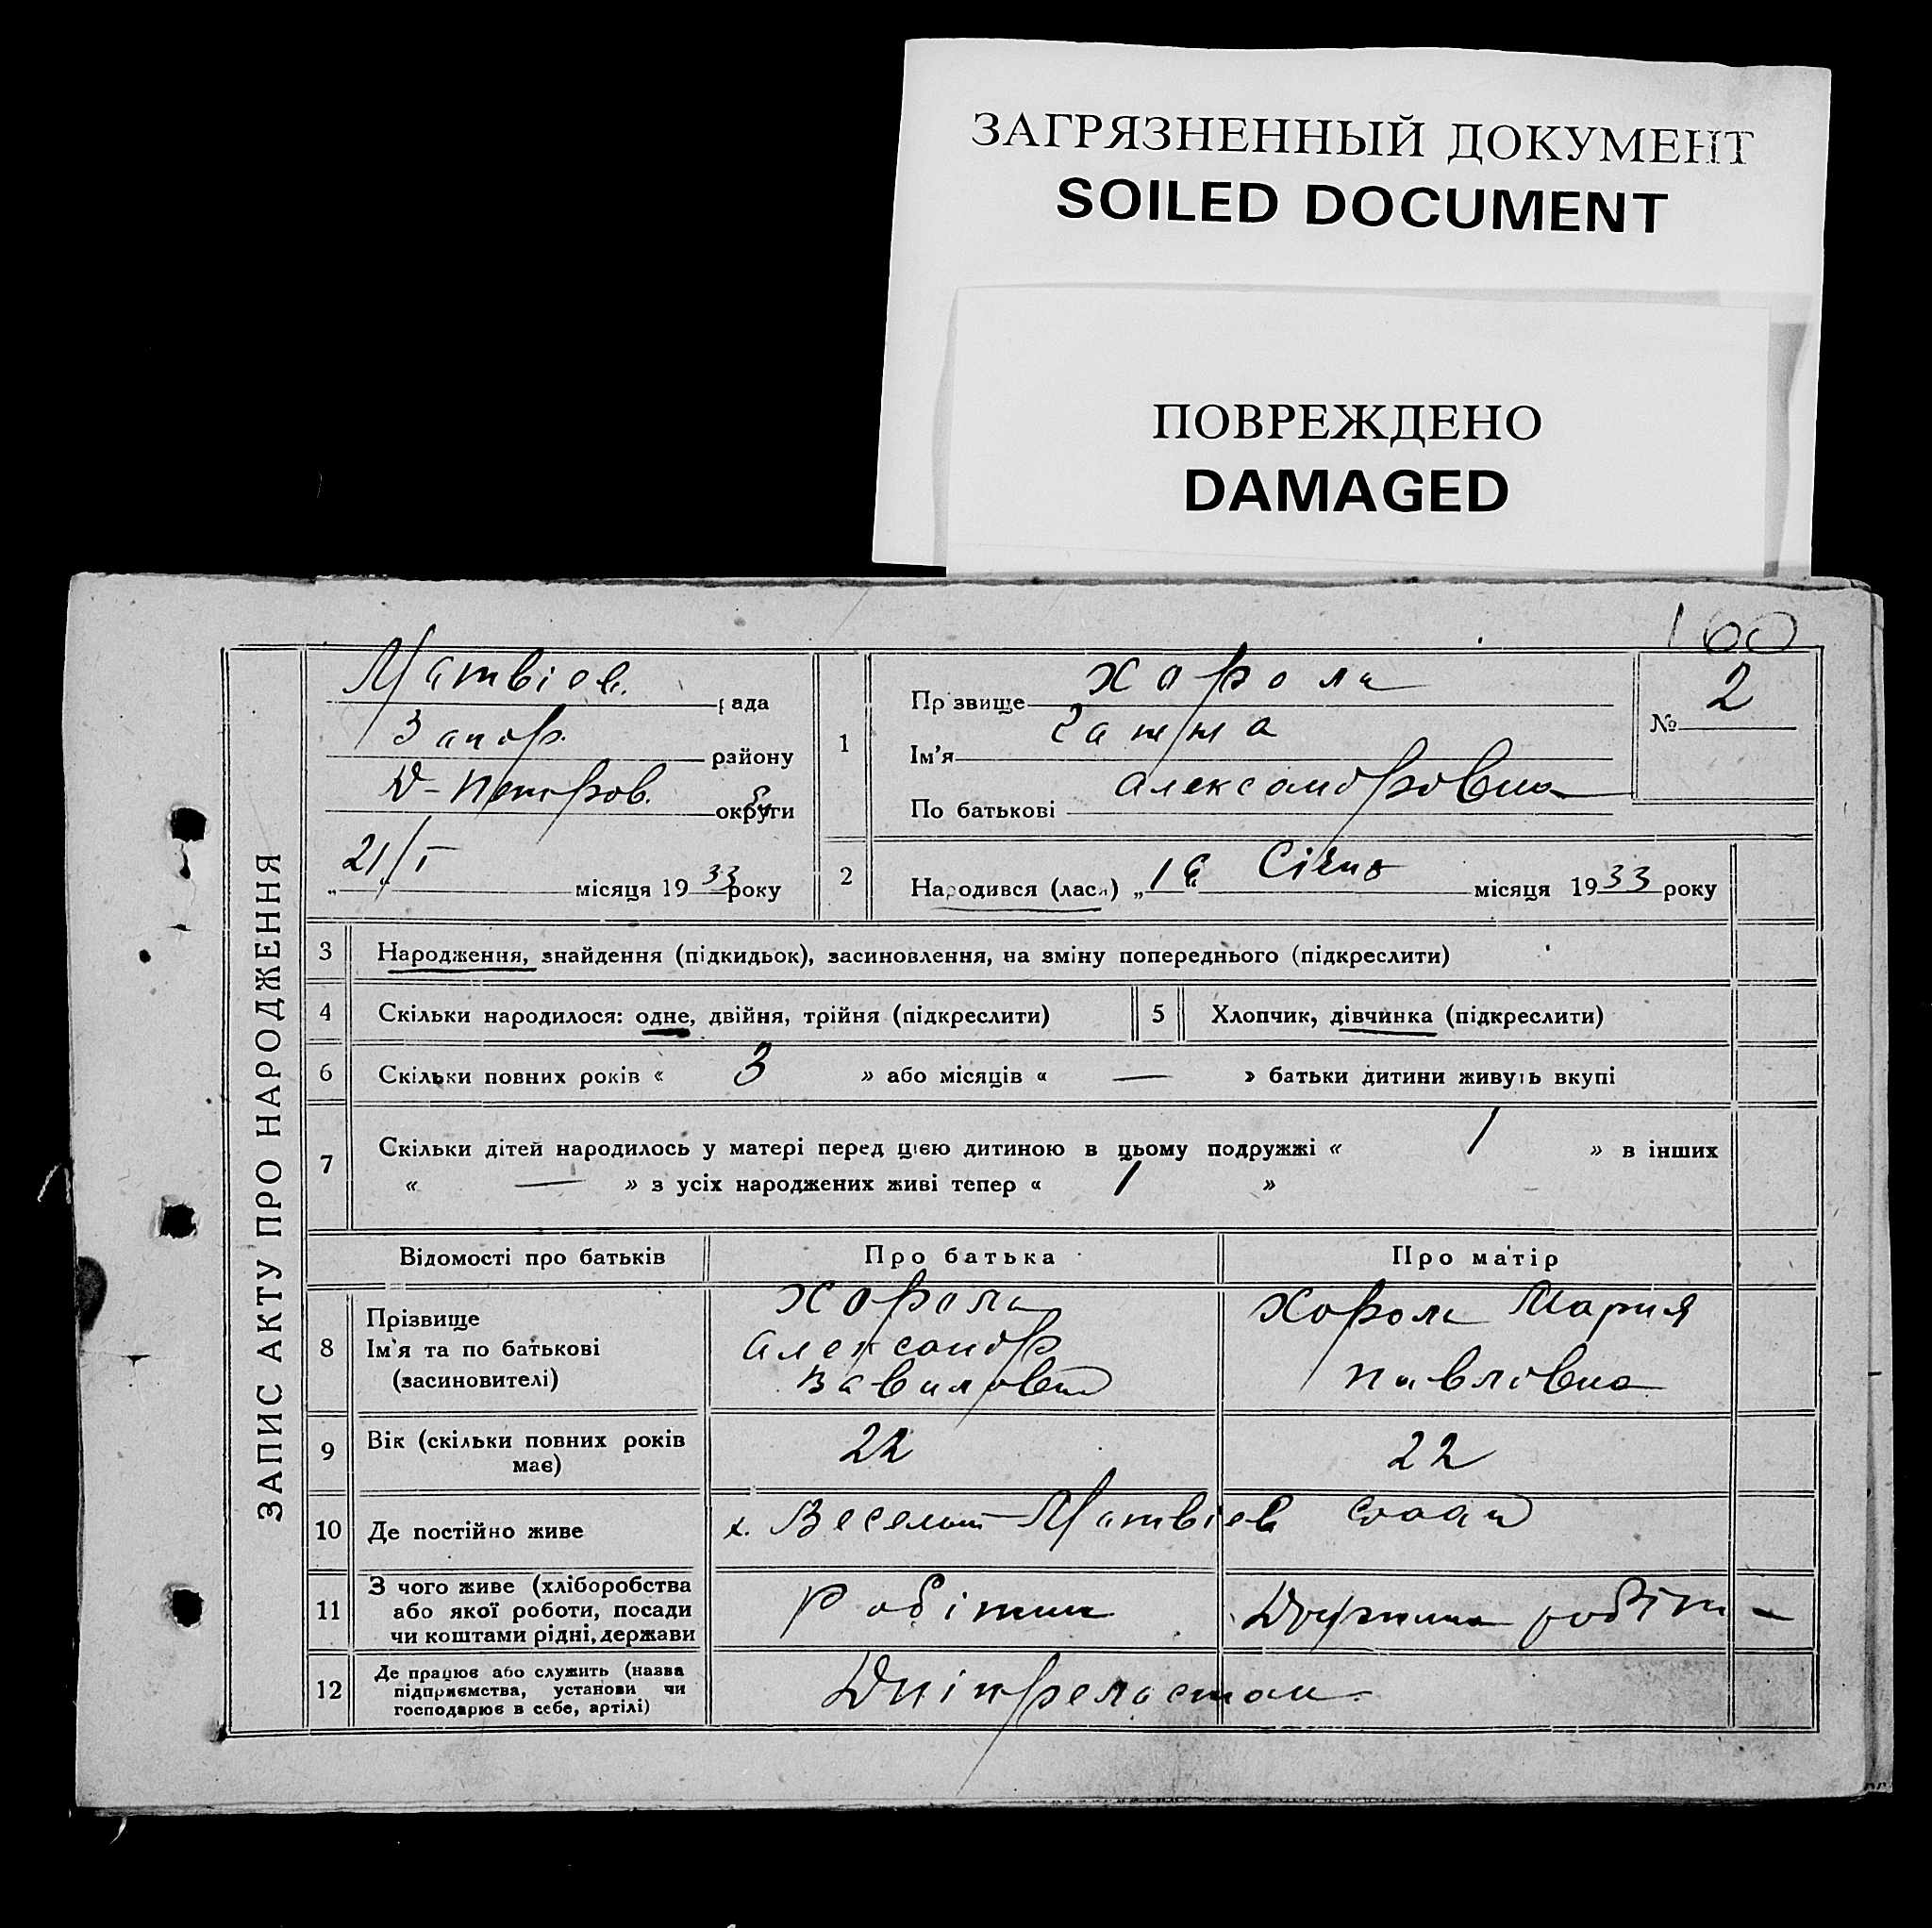 ЗАГРЯЗНЕННЫЙ ДОКУМЕНТ
SOILED DOCUMENT
ПОВРЕЖДЕНО
DAMAGED
160
ЗАПИС АКТУ ПРО НАРОДЖЕННЯ
Матвіев. рада
Запор. району
Д-Петров. округи
21/I місяця 1933 року
1
Прізвище Хороль
Ім'я
По батькові Александровна
№ 2
2 Народився (лася) „16 Січня місяця 1933 року
3 Народження, знайдення (підкидьок), засиновлення, на зміну попереднього (підкреслити)
4 Скільки народилося: одне, двійня, трійня (підкреслити) 5 Хлопчик, дівчинка (підкреслити)
6 Скільки повних років « 3 » або місяців « — » батьки дитини живуть вкупі
7 Скільки дітей народилось у матері перед цією дитиною в цьому подружжі « 1 » в інших
« — » з усіх народжених живі тепер « 1 »
Відомості про батьків Про батька Про матір
8 Прізвище Хороль Хороль Мария
Ім'я та по батькові Александр
(засновителі) Вавилович Павловна
9 Вік (скільки повних років 22 22
має)
10 Де постійно живе х. Веселый Матвіев
11 З чого живе (хліборобства
або якої роботи, посади Робітник Дружина робітн -
чи коштами рідні, держави
12 Де працює або служить (назва
підприємства, установи чи
господарює в себе, артілі)